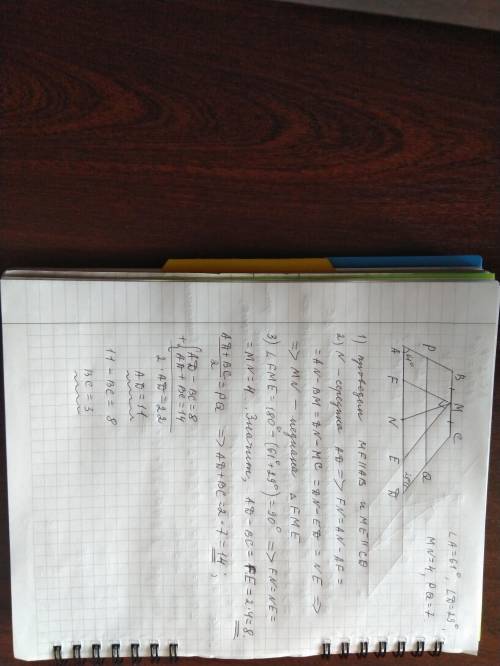 ∠A=61°, ∠D=29°
MN=4, PQ=7
B M C
P Q
61° 29°
A F N E D
1) проводим MF||AB и ME||CD
2) N - середина AD => FN=AN-AF=
=AN-BM=DN-MC=DN-ED=NE =>
=> MN - медиана △FME
3) ∠FME=180°-(61°+29°)=90° => FN=NE=
=MN=4. Значит, AD-BC=FE=2·4=8
AD+BC/2=PQ => AD+BC=2·7=14;
+{AD-BC=8
AD+BC=14
2AD=22
AD=11
11-BC=8
BC=3